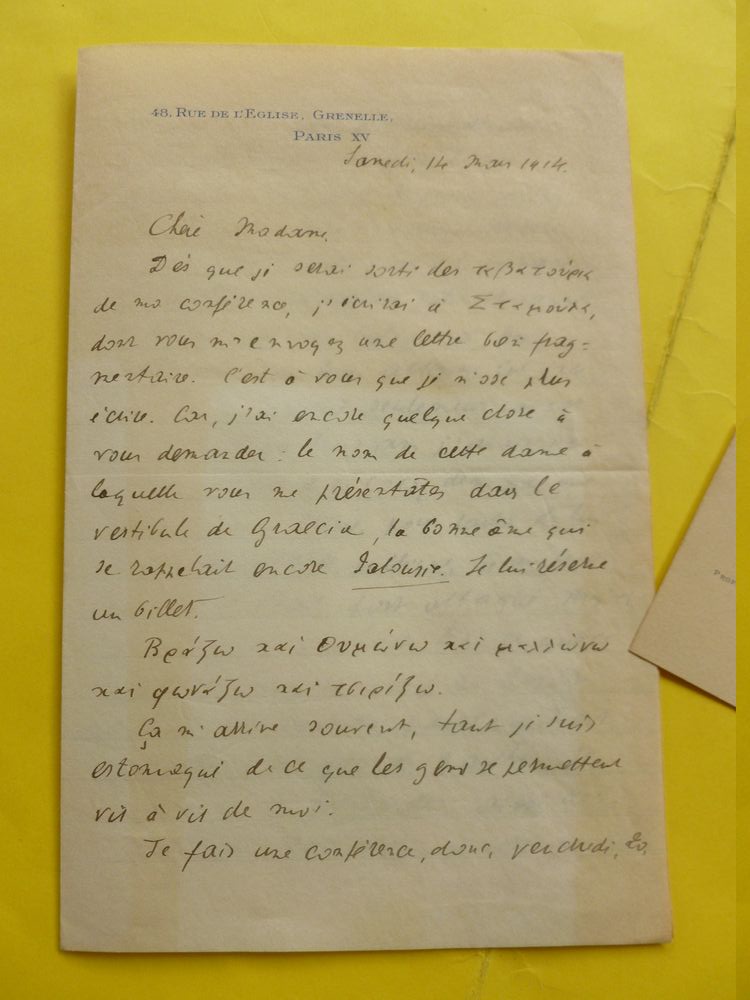 48, RUE DE L'EGLISE, GRENELLE,
PARIS XV
Samedi, 14 Mars 1914.
Chère Madame,
Dès que je serai sorti des ταβατούρια
de ma conférence, j'écrirai à Σταμούλη,
dont vous m'envoyez une lettre bien frag=
mentaire. C'est à vous que je n'ose plus
écrire. Car, j'ai encore quelque chose à
vous demander : le nom de cette dame à
laquelle vous me présentâtes dans le
vestibule de Graecia, la bonne âme qui
se rappelait encore Jalousie. Je lui réserve
un billet.
Βράζω καὶ θυμώνω καὶ μαλλώνω
καὶ φωνάζω καὶ τσιρίζω.
Ça m'arrive souvent, tant je suis
estomaqué de ce que les gens se permettent
vis à vis de moi.
Je fais une conférence, donc, vendredi, 20.